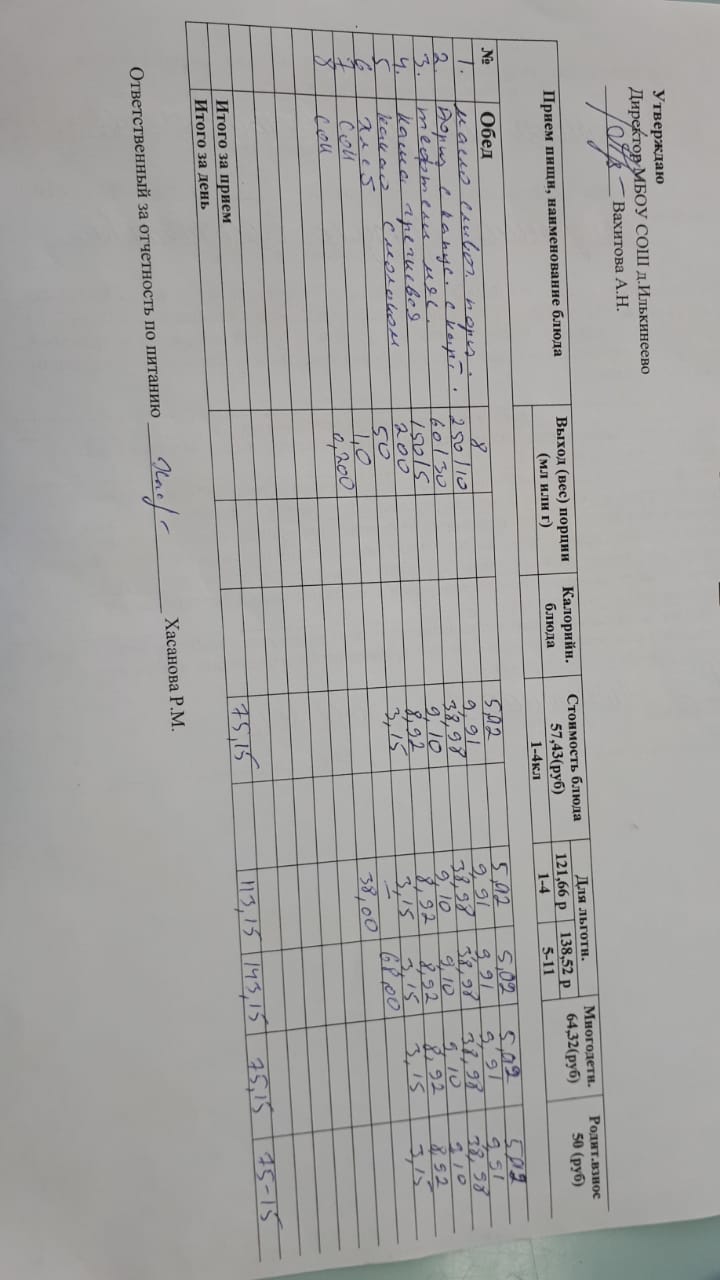 Утверждаю
Директор МБОУ СОШ д.Илькинеево
Вахитова А.Н.
Прием пищи, наименование блюда Выход (вес) порции (мл или г) Калорийн. блюда Стоимость блюда 57,43(руб) 1-4кл Для льготн. 121,66 р 1-4 138,52 р 5-11 Многодетн. 64,32(руб) Родит.взнос 50 (руб)
№ Обед
1. масло сливоч. порц. 8 5,02 5,02 5,02 5,02 5,02
2. борщ с капус. с карт. 250/10 9,91 9,91 9,91 9,91 9,91
3. тефтели мяс. 60/30 38,98 38,98 38,98 38,98 38,98
4. каша гречневая 150/5 9,10 9,10 9,10 9,10 9,10
5 какао с молоком 200 8,92 8,92 8,92 8,92 8,92
6 хлеб 50 3,15 3,15 3,15 3,15 3,15
7 сок 1,0 – 68,00
8 сок 0,200 38,00
Итого за прием 75,15 113,15 143,15 75,15 75-15
Итого за день
Ответственный за отчетность по питанию Хасанова Р.М.